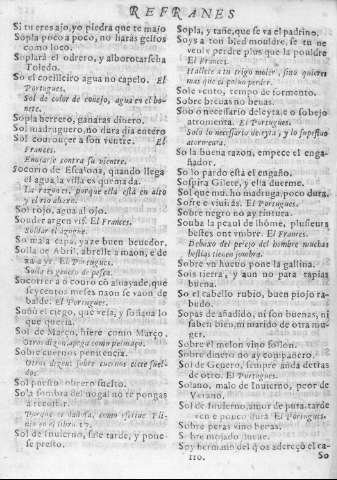 REFRANES
Si tu eres ajo, yo piedra que te majo
Sopla poco a poco, no haras gestos
como loco.
Soplará el odrero, y alborotarseha
Toledo.
So el cocillero agua no capelo. El
Portugues.
Sol de color de conejo, agua es el bo-
nete.
Sopla herrero, ganaras dinero.
Sol madruguero, no dura dia entero
Sol courouçer a son ventre. El
Frances.
Enojarse contra su vientre.
Socorro de Escalona, quando llega
el agua, la villa es quemada.
La razon es, porque ella está en alto
y el rio abaxo.
Sol rojo, agua al ojo.
Souder argen vif. El Frances.
Soldar el azogue.
So mala capa, yaze buen beuedor.
El Portugues.
Socorrer a o couro cò
balde. El Portugues.
Soñó el ciego, que veia, y soñaua lo
que queria.
Sol de Março, hiere como Março.
Otros dizen, apega como pelmaço.
Sobre cuernos penitencia.
Otros dizen sobre cuernos siete suel-
dos.
Sol puesto obrero suelto.
So la sombra del nogal no te pongas
a recostar.
Sol de Inuierno, sale tarde, y pone-
se presto.
Sopla, y tañe, que se va el padrino.
Soys a ton bled mouldre, se tu ne
veulx perdre plus que la pouldre
El Frances.
Hallete a tu trigo moler, sino quieres
mas que el poluo perder.
Sole vento, tempo de formento.
Sobre breuas no beuas.
Soo o necessario deleyta: e o sobejo
atromenta. El Portugues.
Solo lo necessario deleyta, y lo supersluo
atormenta.
So la buena razon, empece el enga-
ñador.
So lo pardo está el engaño.
Sospira Gilete, y ella duerme.
Sol que mu. ho madruga, poco dura.
Sofre e viuirás. El Portugues.
Sobre negro no ay tintura.
Souba la peaul de lhome, plusieura
bestes ont vmbre. El Frances.
Debaxo del pelejo del hombre muchas
bestias tienen sombra.
Sobre vn hueuo pone la gallina.
Sois tierra, y aun no para tapias
buena.
So el cabello rubio, buen piojo ra-
budo.
Sopas de añadido, ni son buenas, ni
saben bien, mi marido de otra mu-
ger.
Sobre el melon vino follon.
Sobre dinero no ay compañero.
Sol de Genero, sempre anda detras
de otero. El Portugues.
Solano, malo de Inuierno, peor de
Verano.
Sol de Inuierno, amor de puta, tarde
ven e pouco dura. El Portugues.
Sobre peras vino beuas.
So